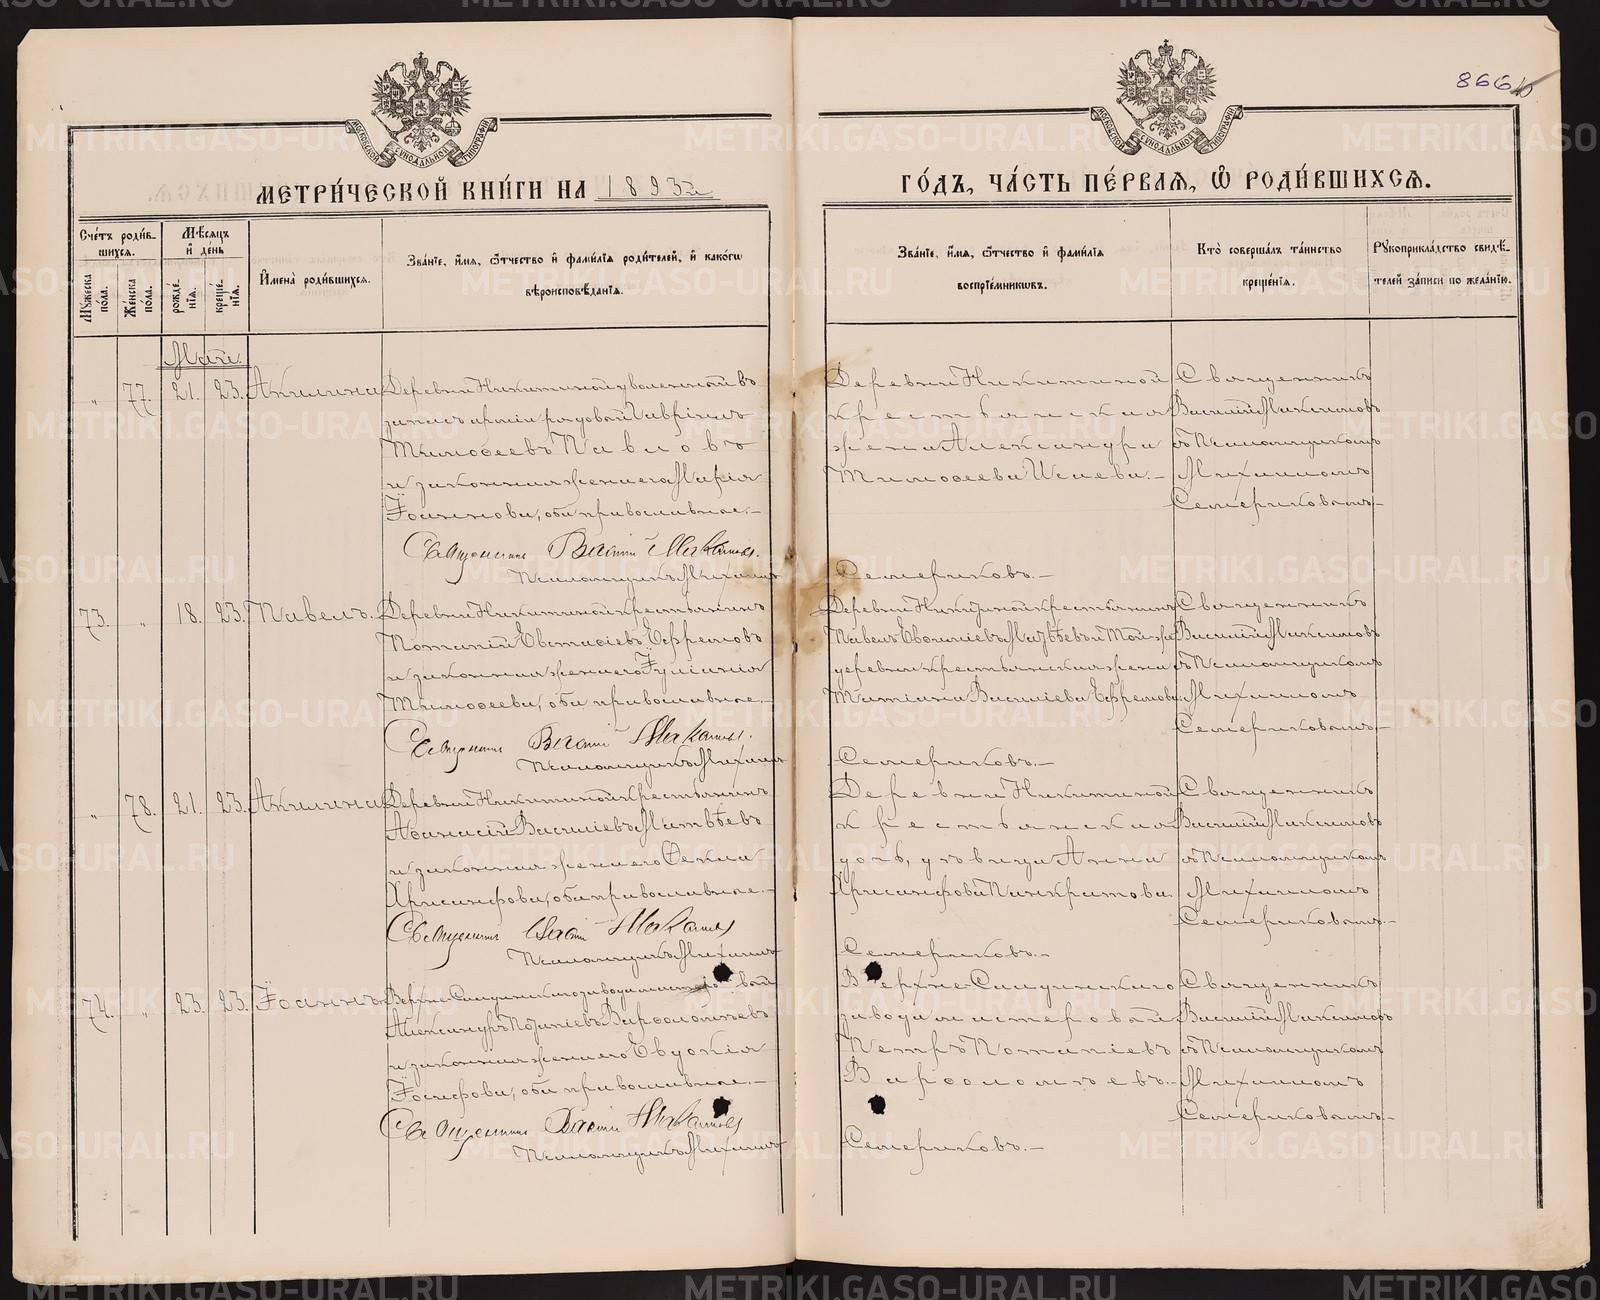 866
МОСКОВСКОЙ СѴНОДАЛЬНОЙ ТИПОГРАФІИ
МЕТРИ́ЧЕСКОЙ КНИ́ГИ НА 1893й
МОСКОВСКОЙ СѴНОДАЛЬНОЙ ТИПОГРАФІИ
ГО́ДЪ, ЧА́СТЬ ПЕ́РВАЯ, Ѿ РОДИ́ВШИХСѦ.
Сче́тъ роди́в-
шихся.
Мѣ́сяцъ
и҆ де́нь
Мꙋ́жеска
пола.
Же́нска
по́ла.
рожде́-
нїѧ.
креще́-
нїѧ.
И҆мена̀ роди́вшихся.
Зва́нїе, и҆́мѧ, ѻ҆́тчество и҆ фами́лїѧ роди́телей, и҆ како́гѡ
вѣроисповѣ́данїѧ.
Зва́нїе, и҆́мѧ, ѻ҆́тчество и҆ фами́лїѧ
воспрїе́мникѡвъ.
Кто̀ соверша́лъ та́инство
креще́нїѧ.
Рꙋкоприкла́дство свидѣ́-
телей за́писи по жела́нїю.
Май.
„ 77. 21. 23. Акилина
Деревни Никитиной уволенный въ
запасъ арміи рядовой Гавріилъ
Тимоѳеевъ Павловъ
и законная жена его Марія
Іоаннова, оба православные.—
Священникъ Василій Максимовъ.
Псаломщикъ Михаилъ
Деревни Никитиной
крестьянская
жена Александра
Тимоѳеева Исаева.—
Семериковъ.—
Священникъ
Василій Максимовъ
съ Псаломщикомъ
Михаиломъ
Семериковымъ.—
73. „ 18. 23. Павелъ.
Деревни Никитиной крестьянинъ
Потапій Евстафіевъ Ефремовъ
и законная жена его Іуліанія
Тимоѳеева, оба православные.—
Священникъ Василій Максимовъ.
Псаломщикъ Михаилъ
Деревни Никитиной крестьянинъ
Павелъ Матвѣевъ и той же
деревни крестьянская жена
Татіана Василіева Ефремова
Семериковъ.—
Священникъ
Василій Максимовъ
съ Псаломщикомъ
Михаиломъ
Семериковымъ.—
„ 78. 21. 23. Акилина
Деревни Никитиной крестьянинъ
Аѳанасій Василіевъ Матвѣевъ
и законная жена его Ѳекла
Хрисанфова, оба православные.—
Священникъ Василій Максимовъ
Псаломщикъ Михаилъ
Деревни Никитиной
крестьянская
дочь, дѣвица Анна
Хрисанфова Панкратова
Семериковъ.—
Священникъ
Василій Максимовъ
съ Псаломщикомъ
Михаиломъ
Семериковымъ.—
74. „ 23. 23. Іоаннъ.
Верхне-Салдинскаго завода мастеровой
Александръ Потапіевъ Варѳоломѣевъ
и законная жена его Евдокія
Іосифова, оба православные.—
Священникъ Василій Максимовъ
Псаломщикъ Михаилъ
Верхне-Салдинскаго
завода мастеровой
Петръ Потапіевъ
Варѳоломѣевъ.—
Семериковъ.—
Священникъ
Василій Максимовъ
съ Псаломщикомъ
Михаиломъ
Семериковымъ.—
METRIKI.GASO-URAL.RU